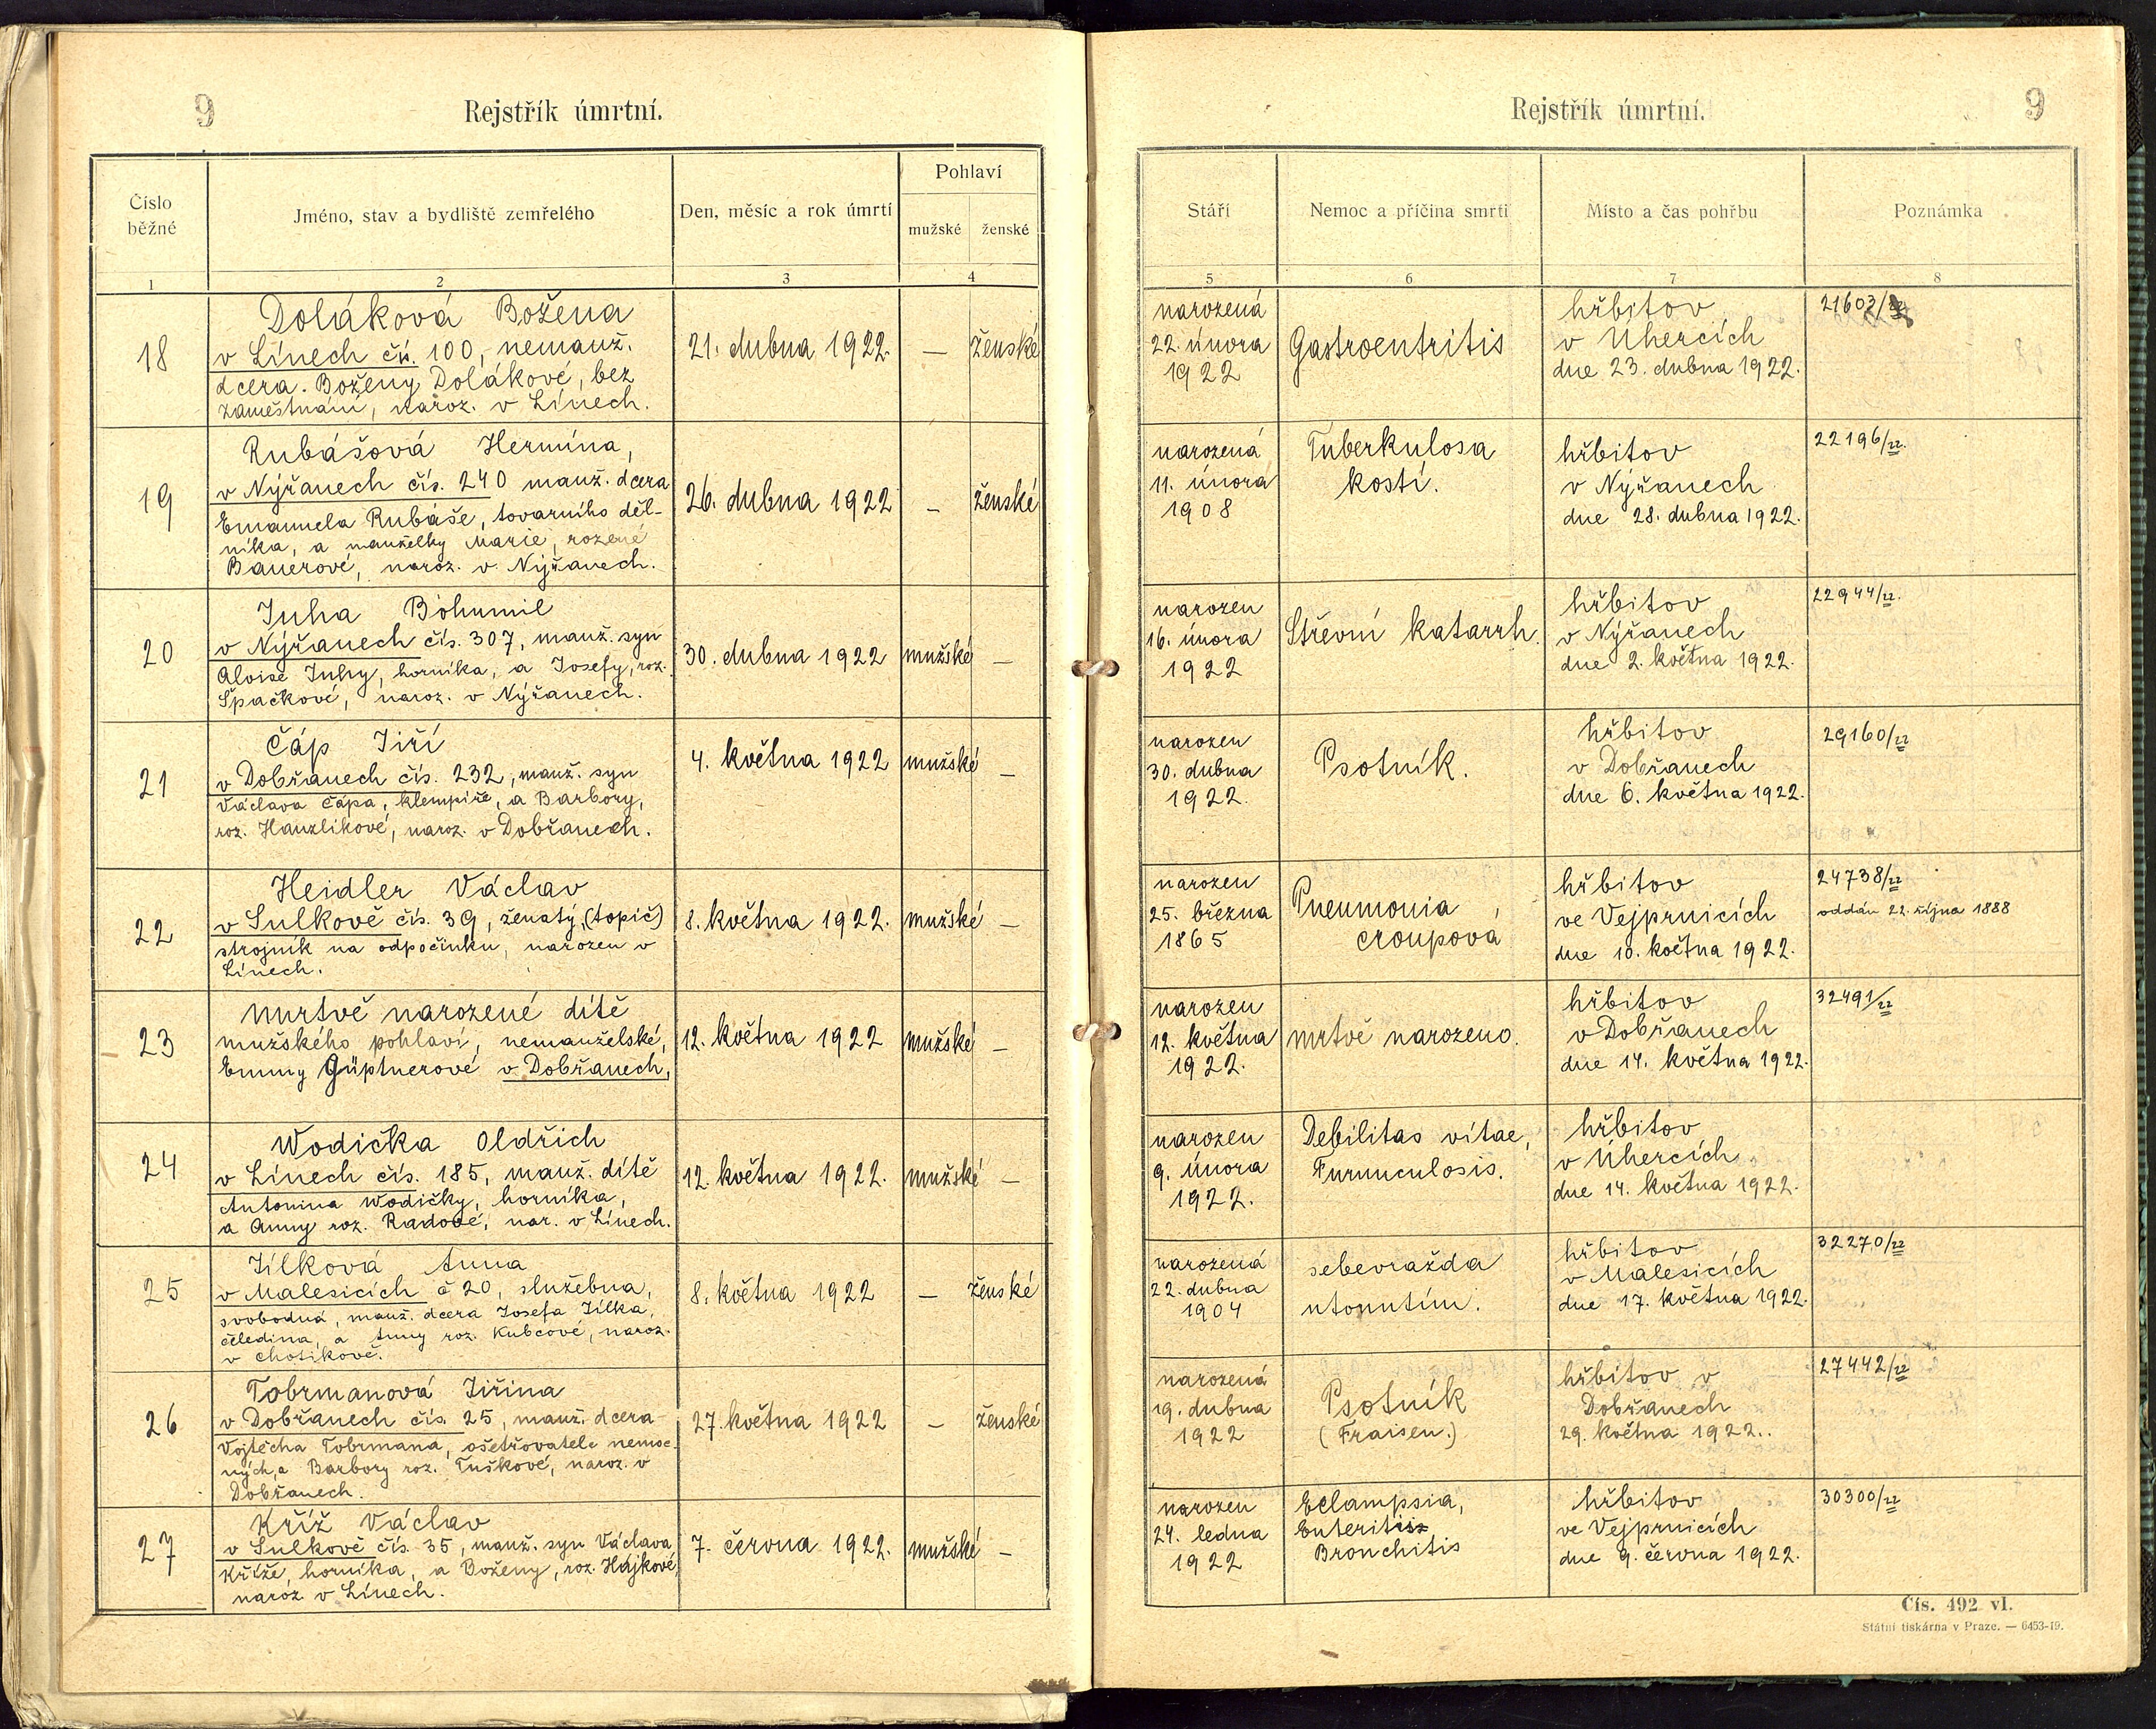 9
Rejstřík úmrtní.
Číslo běžné
Jméno, stav a bydliště zemřelého
Den, měsíc a rok úmrtí
Pohlaví
mužské
ženské
1
2
3
4
18
Doláková Božena
v Línech čís. 100, nemanž.
dcera. Boženy Dolákové, bez
zaměstnání, naroz. v Línech.
21. dubna 1922.
—
ženské
19
Rubášová Hermína,
v Nýřanech čís. 240 manž. dcera
Emanuela Rubáše, továrního děl-
níka, a manželky Marie, rozené
Bauerové, naroz. v Nýřanech.
26. dubna 1922
—
ženské
20
Juha Bohumil
v Nýřanech čís. 307, manž. syn
Aloise Juhy, horníka, a Josefy, roz.
Špačkové, naroz. v Nýřanech.
30. dubna 1922
mužské
—
21
Čáp Jiří
v Dobřanech čís. 232, manž. syn
Václava Čápa, klempíře, a Barbory,
roz. Hanzlíkové, naroz. v Dobřanech.
4. května 1922
mužské
—
22
Heidler Václav
v Sulkově čís. 39, ženatý, (topič)
strojník na odpočinku, narozen v
Línech.
8. května 1922.
mužské
—
23
mrtvě narozené dítě
mužského pohlaví, nemanželské,
Emmy Güptnerové v Dobřanech,
12. května 1922
mužské
—
24
Wodička Oldřich
v Línech čís. 185, manž. dítě
Antonína Wodičky, horníka,
a Anny roz. Radové, nar. v Línech.
12. května 1922.
mužské
—
25
Jílková Anna
v Malesicích č 20, služebna,
svobodná, manž. dcera Josefa Jílka,
čeledína, a Anny roz. Kubcové, naroz.
v Chotíkově.
8. května 1922
—
ženské
26
Tobrmanová Jiřina
v Dobřanech čís. 25, manž. dcera
Vojtěcha Tobrmana, ošetřovatele nemoc-
ných, a Barbory roz. Tuškové, naroz. v
Dobřanech.
27. května 1922
—
ženské
27
Kříž Václav
v Sulkově čís. 35, manž. syn Václava
Kříže, horníka, a Boženy, roz. Hájkové,
naroz. v Línech.
7. června 1922.
mužské
—
Rejstřík úmrtní.
9
Stáří
Nemoc a příčina smrti
Místo a čas pohřbu
Poznámka
5
6
7
8
narozená
22. února
1922
Gastroentritis
hřbitov
v Úhercích
dne 23. dubna 1922.
narozená
11. února
1908
Tuberkulosa
kostí.
hřbitov
v Nýřanech
dne 28. dubna 1922.
22196/22.
narozen
16. února
1922
Střevní katarrh.
hřbitov
v Nýřanech
dne 2. května 1922.
22944/22.
narozen
30. dubna
1922.
Psotník.
hřbitov
v Dobřanech
dne 6. května 1922.
29160/22
narozen
25. března
1865
Pneumonia
croupová
hřbitov
ve Vejprnicích
dne 10. května 1922.
24738/22
oddán 22. října 1888
narozen
12. května
1922.
mrtvě narozeno.
hřbitov
v Dobřanech
dne 14. května 1922.
32491/22
narozen
9. února
1922.
Debilitas vitae,
Furunculosis.
hřbitov
v Úhercích
dne 14. května 1922.
narozená
22. dubna
1904
sebevražda
utonutím.
hřbitov
v Malesicích
dne 17. května 1922.
32270/22
narozená
19. dubna
1922
Psotník
(Fraisen.)
hřbitov v
Dobřanech
29. května 1922..
27442/22
narozen
24. ledna
1922
Eclampsia,
Enteritis
Bronchitis
hřbitov
ve Vejprnicích
dne 9. června 1922.
30300/22
Čís. 492 vI.
Státní tiskárna v Praze. — 6453-19.